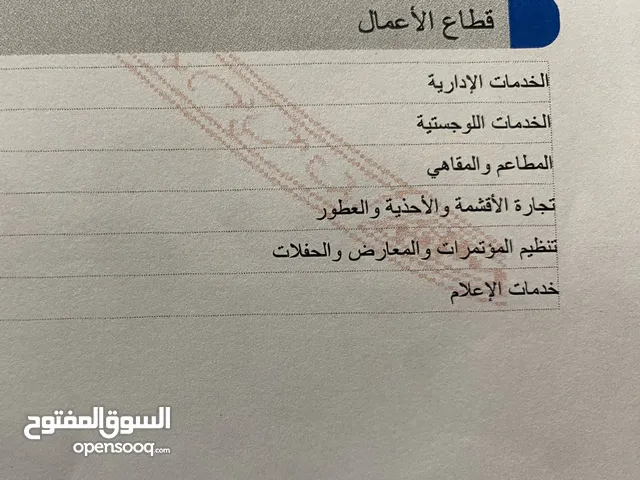 قطاع الأعمال
الخدمات الإدارية
الخدمات اللوجستية
المطاعم والمقاهي
تجارة الأقشمة والأحذية والعطور
تنظيم المؤتمرات والمعارض والحفلات
خدمات الإعلام
السوق المفتوح
opensooq.com